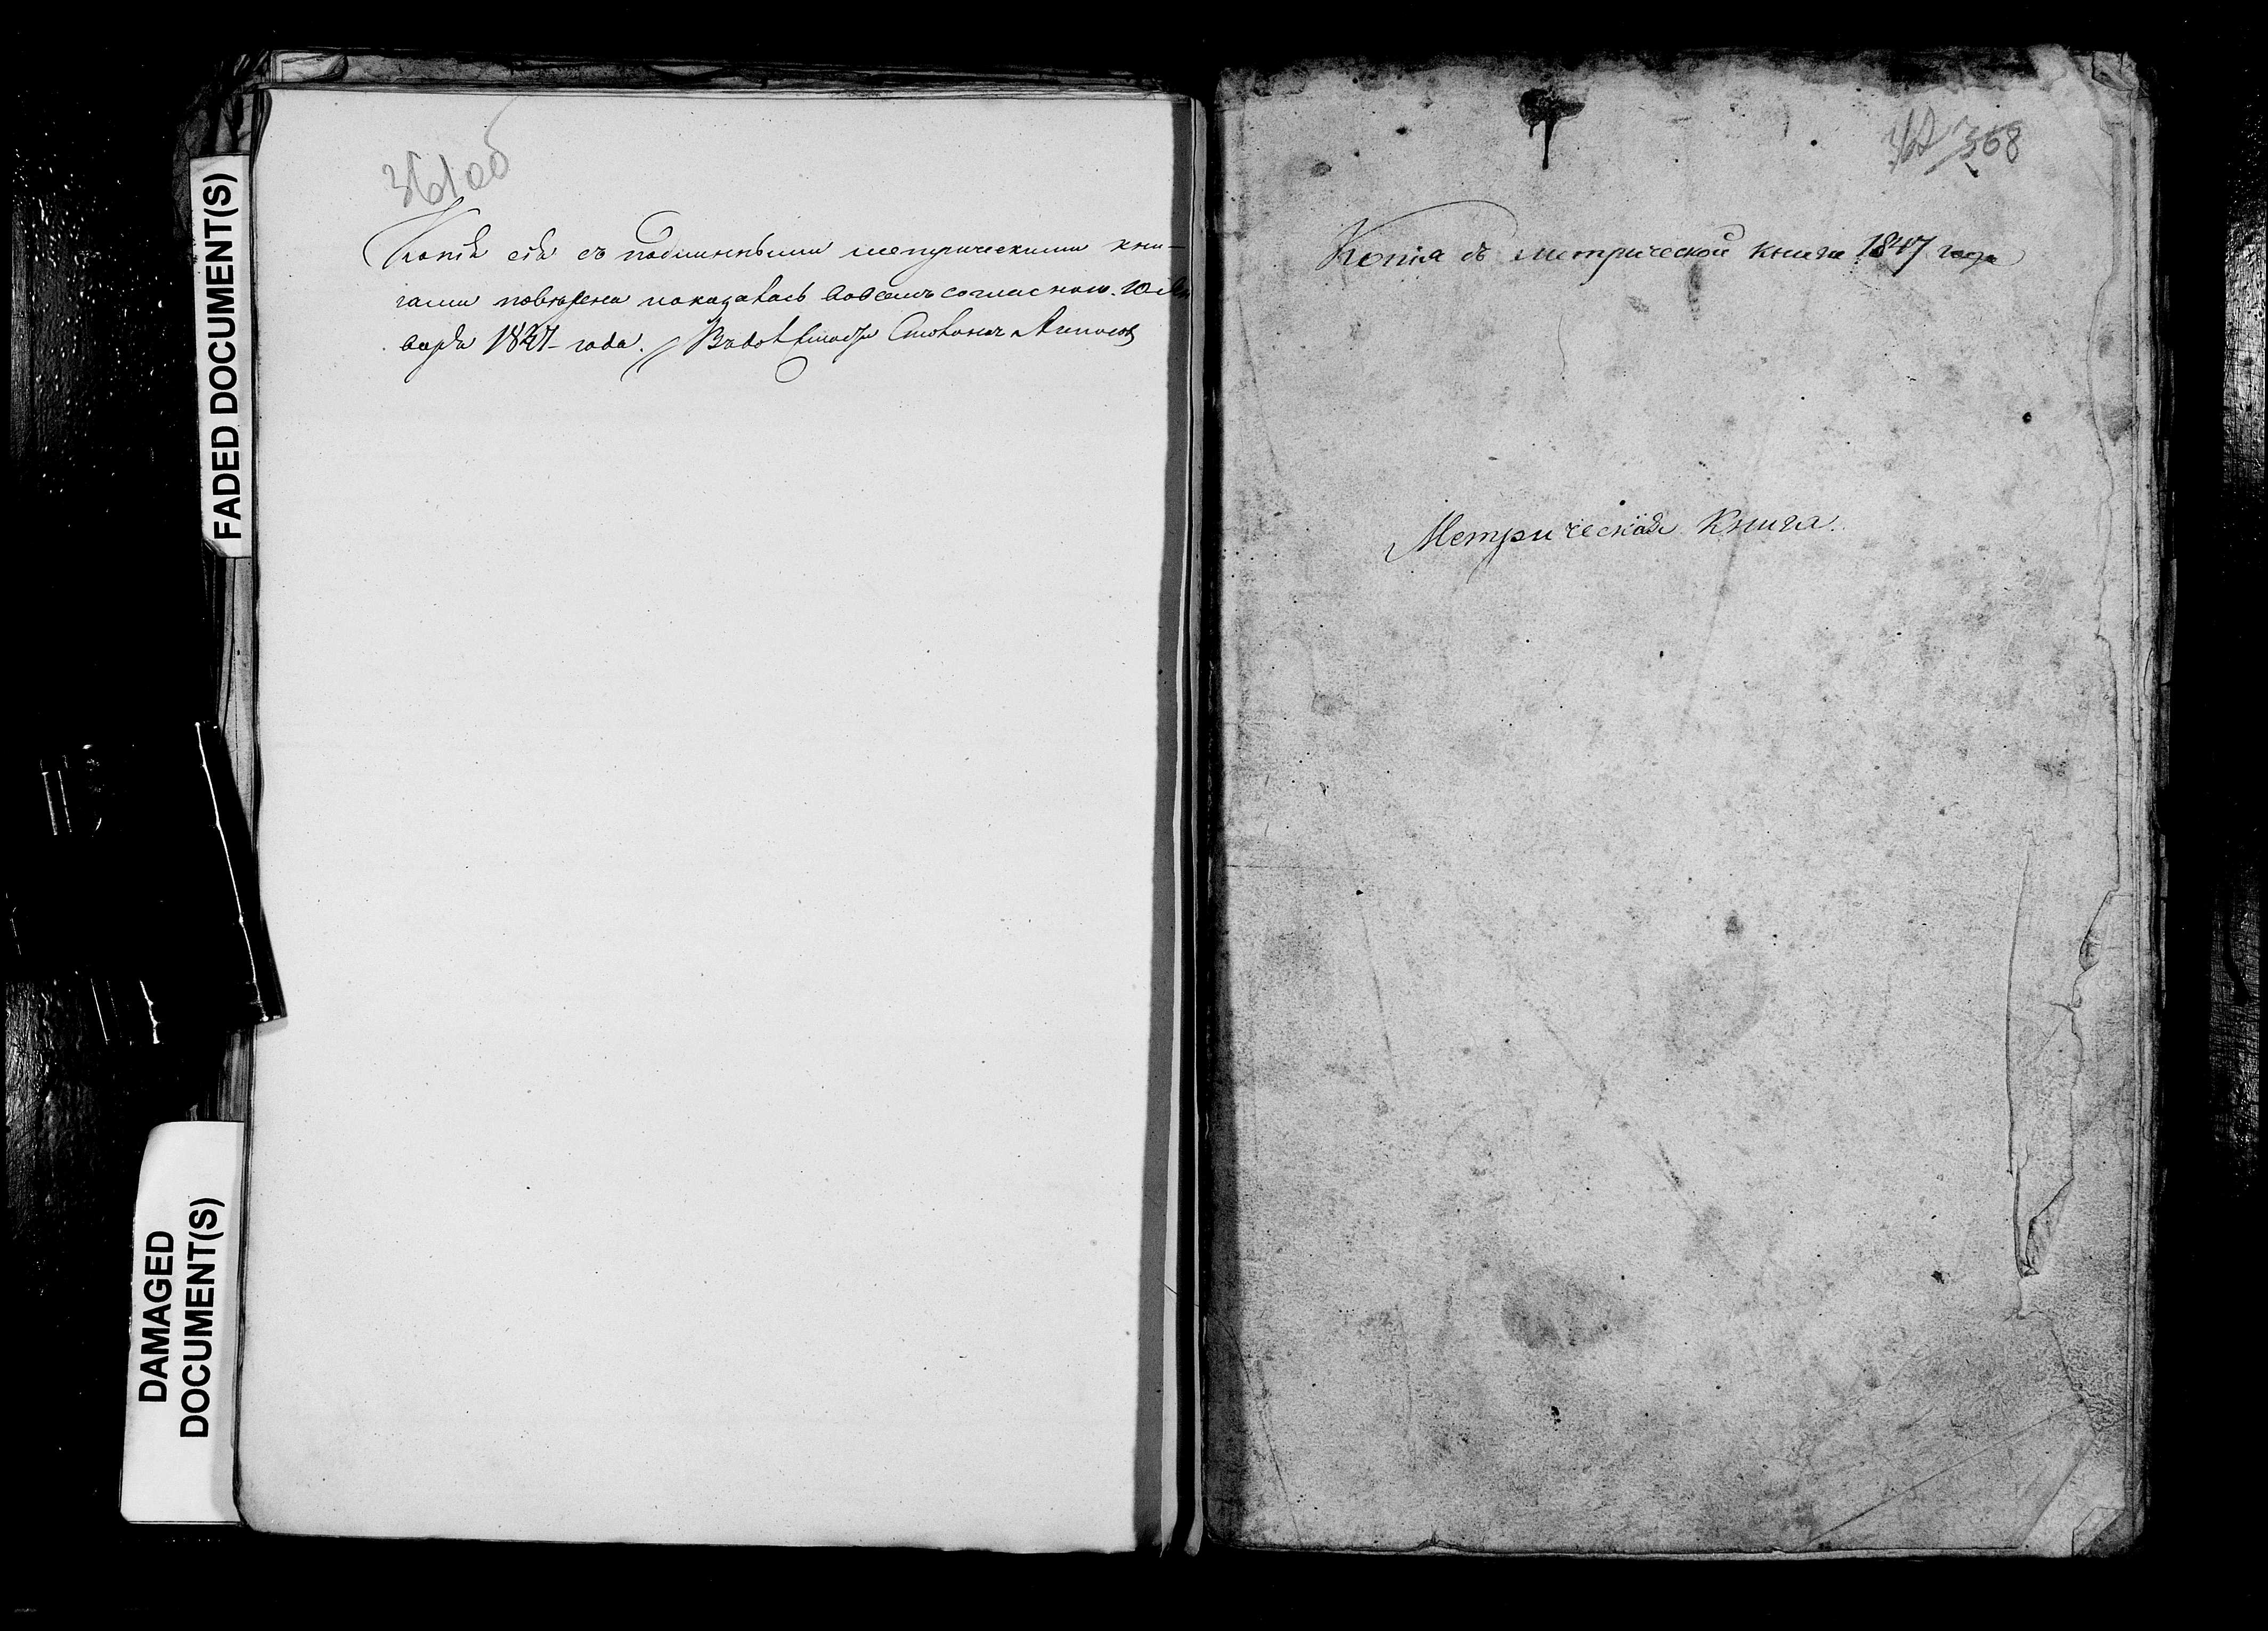 FADED DOCUMENT(S)
DAMAGED
DOCUMENT(S)
361 об
Копія сія съ подлинными метрическими кни-
гами повѣрена показалась во всемъ согласною. 10 Ян
варя 1847 года.
362 358
Копія съ метрической книги 1847 года
Метрическая Книга.